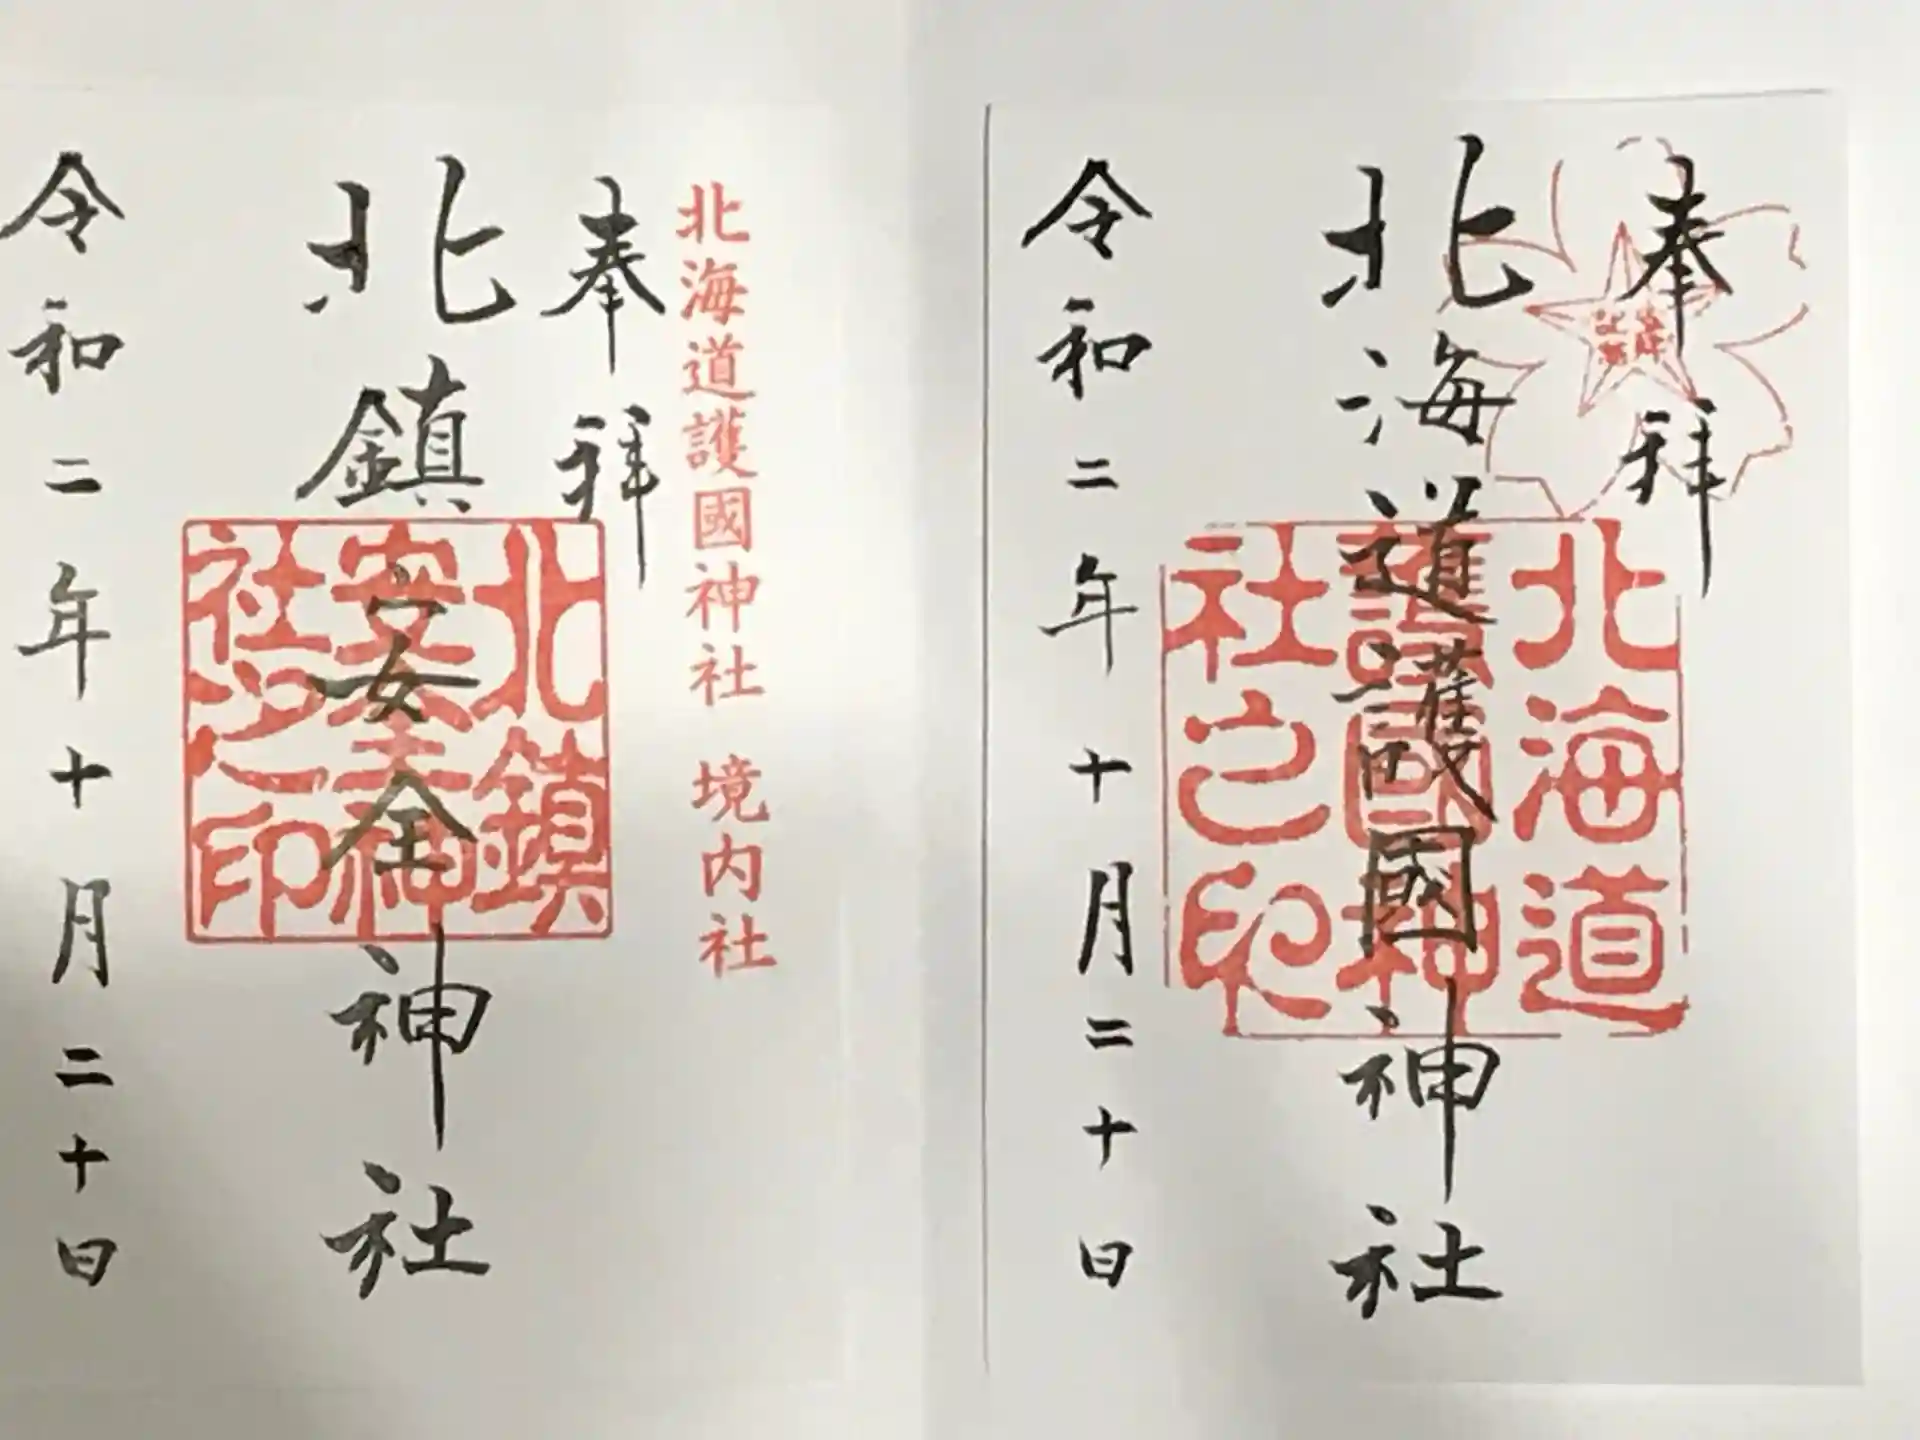 奉拝
北海道護國神社
北海道護國神社之印
令和二年十月二十日
北海道護國神社 境内社
奉拝
北鎮安全神社
北鎮安全神社之印
令和二年十月二十日